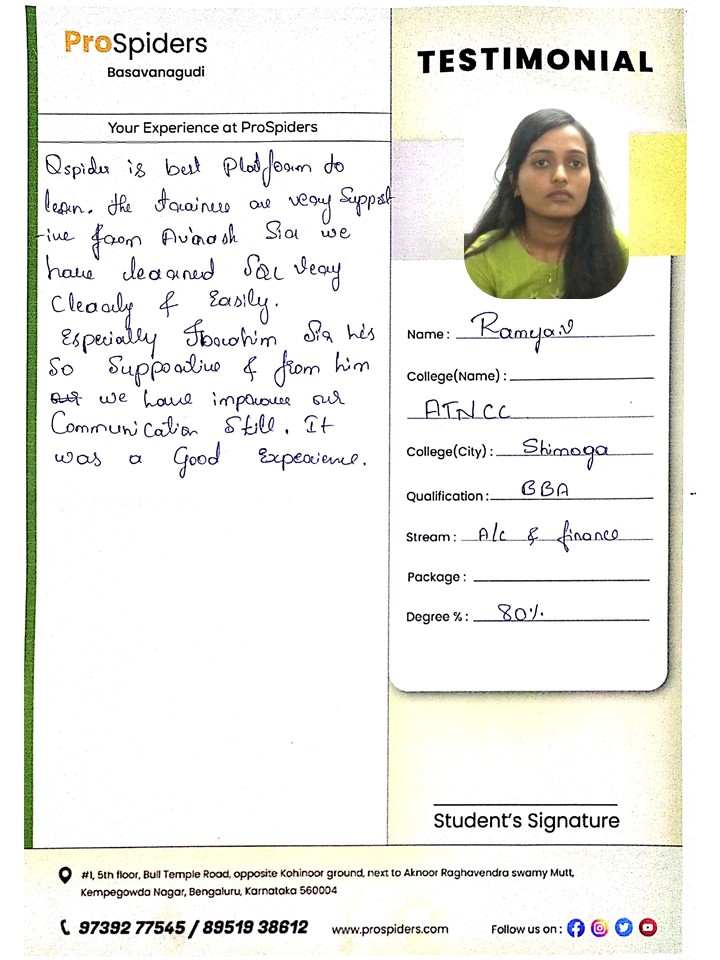 ProSpiders
Basavanagudi
TESTIMONIAL
Your Experience at ProSpiders
Qspider is best Platform to
learn. the trainers are very Support
-ive from Avinash Sir we
have learned SQL Very
Clearly & Easily.
Especially Ibrahim Sir his
So Supportive & from him
we have improve our
Communication Skill. It
was a Good Experience.
Name : Ramya.V
College(Name) :
ATNCC
College(City) : Shimoga
Qualification : BBA
Stream : A/c & finance
Package :
Degree % : 80%
Student's Signature
#1, 5th floor, Bull Temple Road, opposite Kohinoor ground, next to Aknoor Raghavendra swamy Mutt,
Kempegowda Nagar, Bengaluru, Karnataka 560004
97392 77545 / 89519 38612 www.prospiders.com Follow us on :